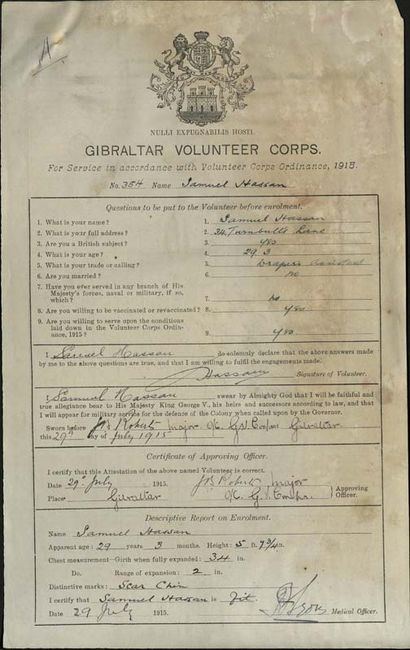 NULLI EXPUGNABILIS HOSTI.
GIBRALTAR VOLUNTEER CORPS.
For Service in accordance with Volunteer Corps Ordinance, 1915.
No. 354 Name Samuel Hassan
Questions to be put to the Volunteer before enrolment.
1. What is your name? 1. Samuel Hassan
2. What is your full address? 2. 34 Turnbull's Lane
3. Are you a British subject? 3. yes
4. What is your age? 4. 29.3
5. What is your trade or calling? 5. Drapers Assistant
6. Are you married? 6. no
7. Have you ever served in any branch of His
Majesty's forces, naval or military, if so,
which? 7. no
8. Are you willing to be vaccinated or revaccinated? 8. yes
9. Are you willing to serve upon the conditions
laid down in the Volunteer Corps Ordin-
ance, 1915? 9. yes
I Samuel Hassan do solemnly declare that the above answers made
by me to the above questions are true, and that I am willing to fulfil the engagements made.
Hassan Signature of Volunteer.
I Samuel Hassan swear by Almighty God that I will be faithful and
true allegiance bear to His Majesty King George V., his heirs and successors according to law, and that
I will appear for military service for the defence of the Colony when called upon by the Governor.
Sworn before Major Gibraltar
this 29th day of July 1915
Certificate of Approving Officer.
I certify that this Attestation of the above named Volunteer is correct.
Date 29 July 1915. major Approving
Place Gibraltar Officer.
Descriptive Report on Enrolment.
Name Samuel Hassan
Apparent age: 29 years 3 months. Height: 5 ft. 7¾ in.
Chest measurement—Girth when fully expanded: 34 in.
Do. Range of expansion: 2 in.
Distinctive marks: Scar Chin
I certify that Samuel Hassan is fit.
Date 29 July 1915. Medical Officer.